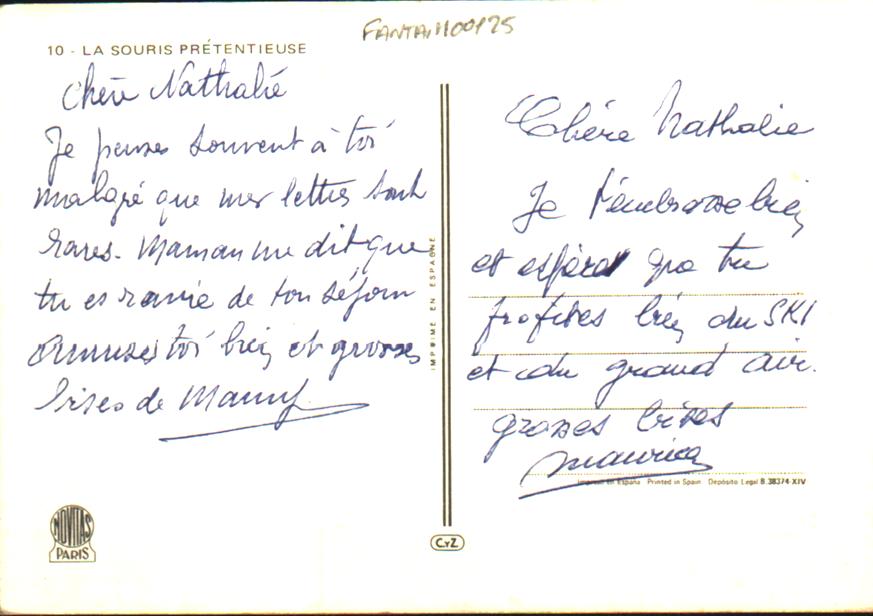 FANTAI100125
10 - LA SOURIS PRÉTENTIEUSE
Chère Nathalie
Je penses souvent à toi
malgré que mes lettres sont
rares. Maman me dit que
tu es ravie de ton séjour
Amuses toi bien et grosses
bises de Mamy
IMPRIME EN ESPAGNE
Chère Nathalie
Je t'embrasse bien
et espère que tu
profites bien du SKI
et du grand air.
grosses bises
Maurice
Impreso en España Printed in Spain Depósito Legal B. 38374-XIV
NOVITAS
PARIS
C.yZ.